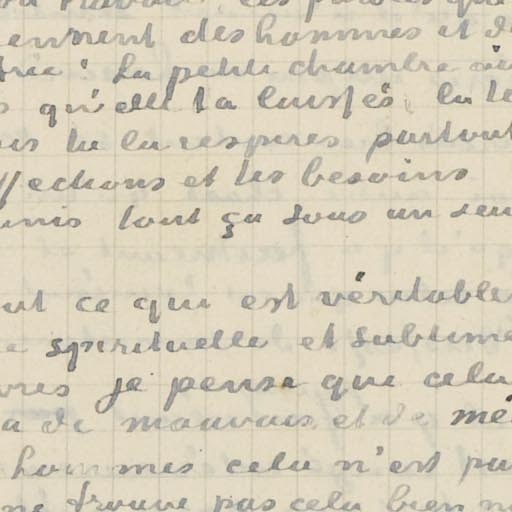 travail les paroles que
ennent des hommes et d
trie : La petite chambre où
s qu'elle t'a laissés, la te
is tu la respires partout
ffections et tes besoins
unis tout ça sous un seu
ut ce que est véritable
e spirituelle et sublime
vres je pense que cela
a de mauvais et de mé
hommes cela n'est pa
ne trouve pas cela bien